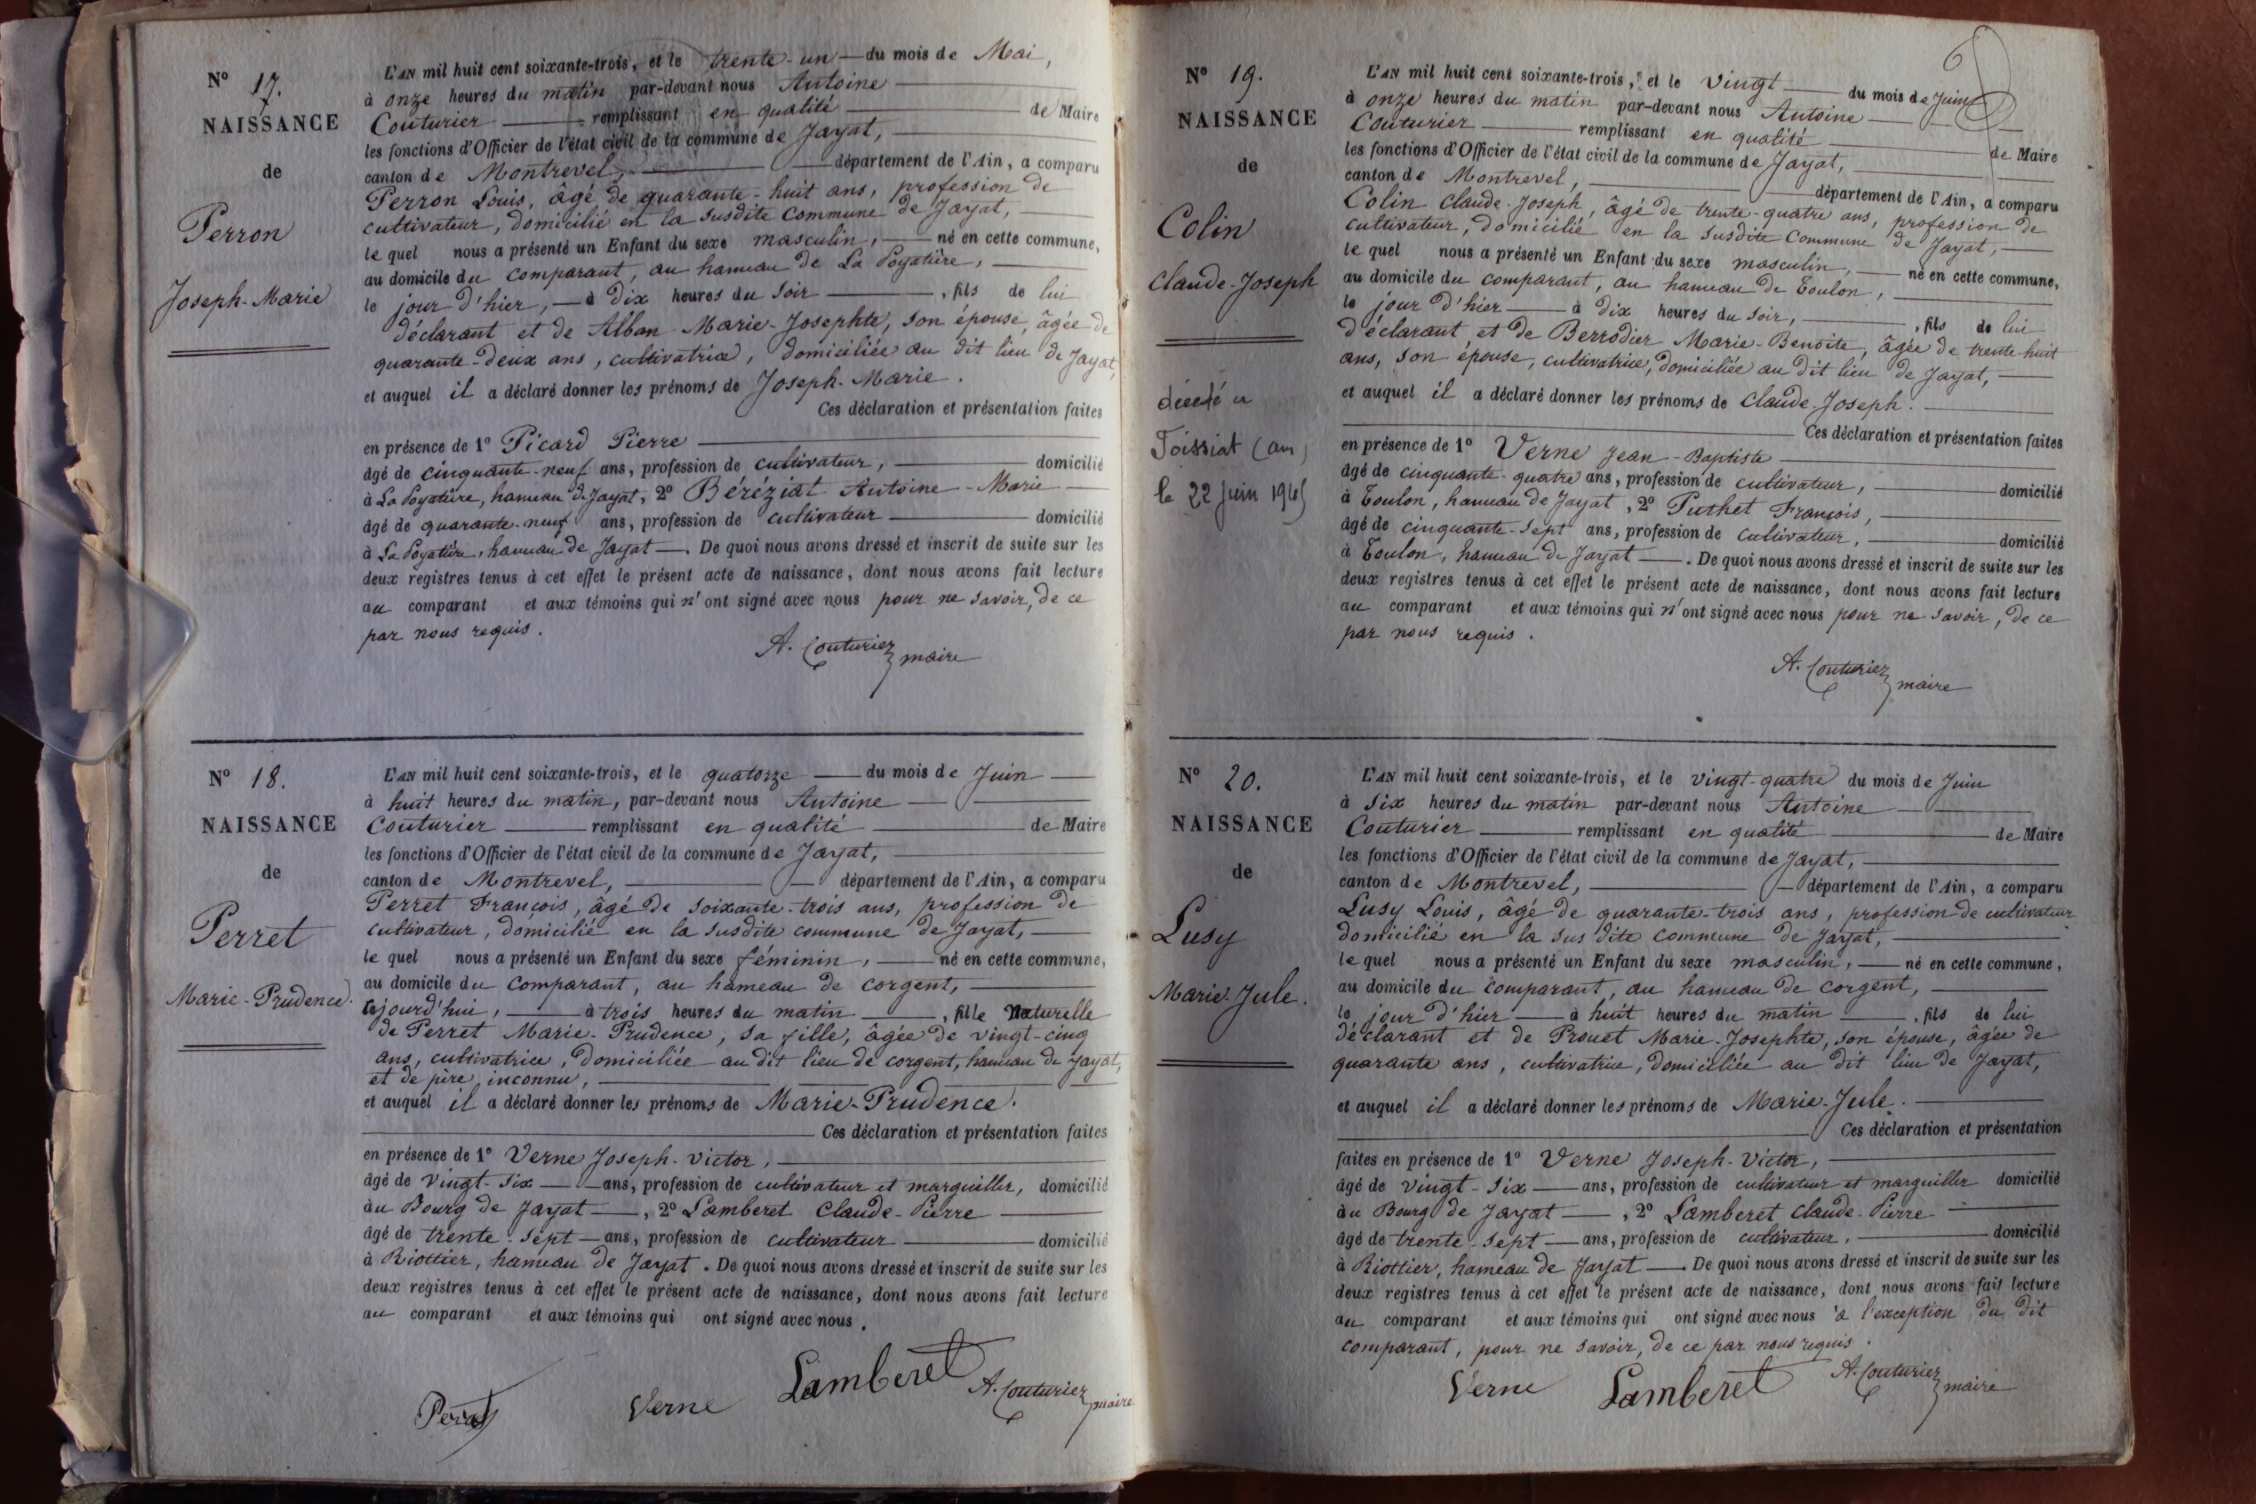 N° 17.
NAISSANCE
de
Perron
Joseph-Marie
L'AN mil huit cent soixante-trois, et le trente-un du mois de Mai,
à onze heures du matin par-devant nous Antoine
Couturier remplissant en qualité de Maire
les fonctions d'Officier de l'état civil de la commune de Jayat,
canton de Montrevel, département de l'Ain, a comparu
Perron Louis, âgé de quarante-huit ans, profession de
cultivateur, domicilié en la susdite commune de Jayat,
le quel nous a présenté un Enfant du sexe masculin, né en cette commune,
au domicile du comparant, au hameau de La Poyatière,
le jour d'hier, à dix heures du soir, fils de lui
déclarant et de Alban Marie-Josephte, son épouse, âgée de
quarante-deux ans, cultivatrice, domiciliée au dit lieu de Jayat,
et auquel il a déclaré donner les prénoms de Joseph-Marie.
Ces déclaration et présentation faites
en présence de 1° Picard Pierre
âgé de cinquante-neuf ans, profession de cultivateur, domicilié
à La Poyatière, hameau de Jayat, 2° Béréziat Antoine-Marie
âgé de quarante-neuf ans, profession de cultivateur domicilié
à La Poyatière, hameau de Jayat. De quoi nous avons dressé et inscrit de suite sur les
deux registres tenus à cet effet le présent acte de naissance, dont nous avons fait lecture
au comparant et aux témoins qui n'ont signé avec nous pour ne savoir, de ce
par nous requis.
A. Couturier maire
N° 18.
NAISSANCE
de
Perret
Marie-Prudence.
L'AN mil huit cent soixante-trois, et le quatorze du mois de Juin
à huit heures du matin, par-devant nous Antoine
Couturier remplissant en qualité de Maire
les fonctions d'Officier de l'état civil de la commune de Jayat,
canton de Montrevel, département de l'Ain, a comparu
Perret François, âgé de soixante-trois ans, profession de
cultivateur, domicilié en la susdite commune de Jayat,
le quel nous a présenté un Enfant du sexe féminin, né en cette commune,
au domicile du comparant, au hameau de Corgent,
cejourd'hui, à trois heures du matin, fille Naturelle
de Perret Marie-Prudence, sa fille, âgée de vingt-cinq
ans, cultivatrice, domiciliée au dit lieu de corgent, hameau de Jayat,
et de père inconnu,
et auquel il a déclaré donner les prénoms de Marie-Prudence.
Ces déclaration et présentation faites
en présence de 1° Verne Joseph-Victor,
âgé de vingt-six ans, profession de cultivateur et marguiller, domicilié
au Bourg de Jayat, 2° Lamberet Claude-Pierre
âgé de trente-sept ans, profession de cultivateur domicilié
à Riottier, hameau de Jayat. De quoi nous avons dressé et inscrit de suite sur les
deux registres tenus à cet effet le présent acte de naissance, dont nous avons fait lecture
au comparant et aux témoins qui ont signé avec nous.
Perret Verne Lamberet A. Couturier maire
N° 19.
NAISSANCE
de
Colin
Claude-Joseph
décédé à
Foissiat (Ain)
le 22 Juin 1945
L'AN mil huit cent soixante-trois, et le vingt du mois de Juin
à onze heures du matin par-devant nous Antoine
Couturier remplissant en qualité de Maire
les fonctions d'Officier de l'état civil de la commune de Jayat,
canton de Montrevel, département de l'Ain, a comparu
Colin Claude-Joseph, âgé de trente-quatre ans, profession de
cultivateur, domicilié en la susdite Commune de Jayat,
le quel nous a présenté un Enfant du sexe masculin, né en cette commune,
au domicile du comparant, au hameau de Toulon,
le jour d'hier à dix heures du soir, fils de lui
déclarant et de Berrodier Marie-Benoite, âgée de trente-huit
ans, son épouse, cultivatrice, domiciliée au dit lieu de Jayat,
et auquel il a déclaré donner les prénoms de Claude-Joseph.
Ces déclaration et présentation faites
en présence de 1° Verne Jean-Baptiste
âgé de cinquante-quatre ans, profession de cultivateur, domicilié
à Toulon, hameau de Jayat, 2° Puthet François,
âgé de cinquante-sept ans, profession de cultivateur, domicilié
à Toulon, hameau de Jayat. De quoi nous avons dressé et inscrit de suite sur les
deux registres tenus à cet effet le présent acte de naissance, dont nous avons fait lecture
au comparant et aux témoins qui n'ont signé avec nous pour ne savoir, de ce
par nous requis.
A. Couturier maire
N° 20.
NAISSANCE
de
Lusy
Marie-Jule.
L'AN mil huit cent soixante-trois, et le vingt-quatre du mois de Juin
à six heures du matin par-devant nous Antoine
Couturier remplissant en qualité de Maire
les fonctions d'Officier de l'état civil de la commune de Jayat,
canton de Montrevel, département de l'Ain, a comparu
Lusy Louis, âgé de quarante-trois ans, profession de cultivateur
domicilié en la sus dite commune de Jayat,
le quel nous a présenté un Enfant du sexe masculin, né en cette commune,
au domicile du comparant, au hameau de Corgent,
le jour d'hier à huit heures du matin, fils de lui
déclarant et de Prouet Marie-Josephte, son épouse, âgée de
quarante ans, cultivatrice, domiciliée au dit lieu de Jayat,
et auquel il a déclaré donner les prénoms de Marie-Jule.
Ces déclaration et présentation
faites en présence de 1° Verne Joseph-Victor,
âgé de vingt-six ans, profession de cultivateur et marguiller domicilié
au Bourg de Jayat, 2° Lamberet Claude-Pierre
âgé de trente-sept ans, profession de cultivateur, domicilié
à Riottier, hameau de Jayat. De quoi nous avons dressé et inscrit de suite sur les
deux registres tenus à cet effet le présent acte de naissance, dont nous avons fait lecture
au comparant et aux témoins qui ont signé avec nous à l'exception du dit
comparant, pour ne savoir, de ce par nous requis.
Verne Lamberet A. Couturier maire